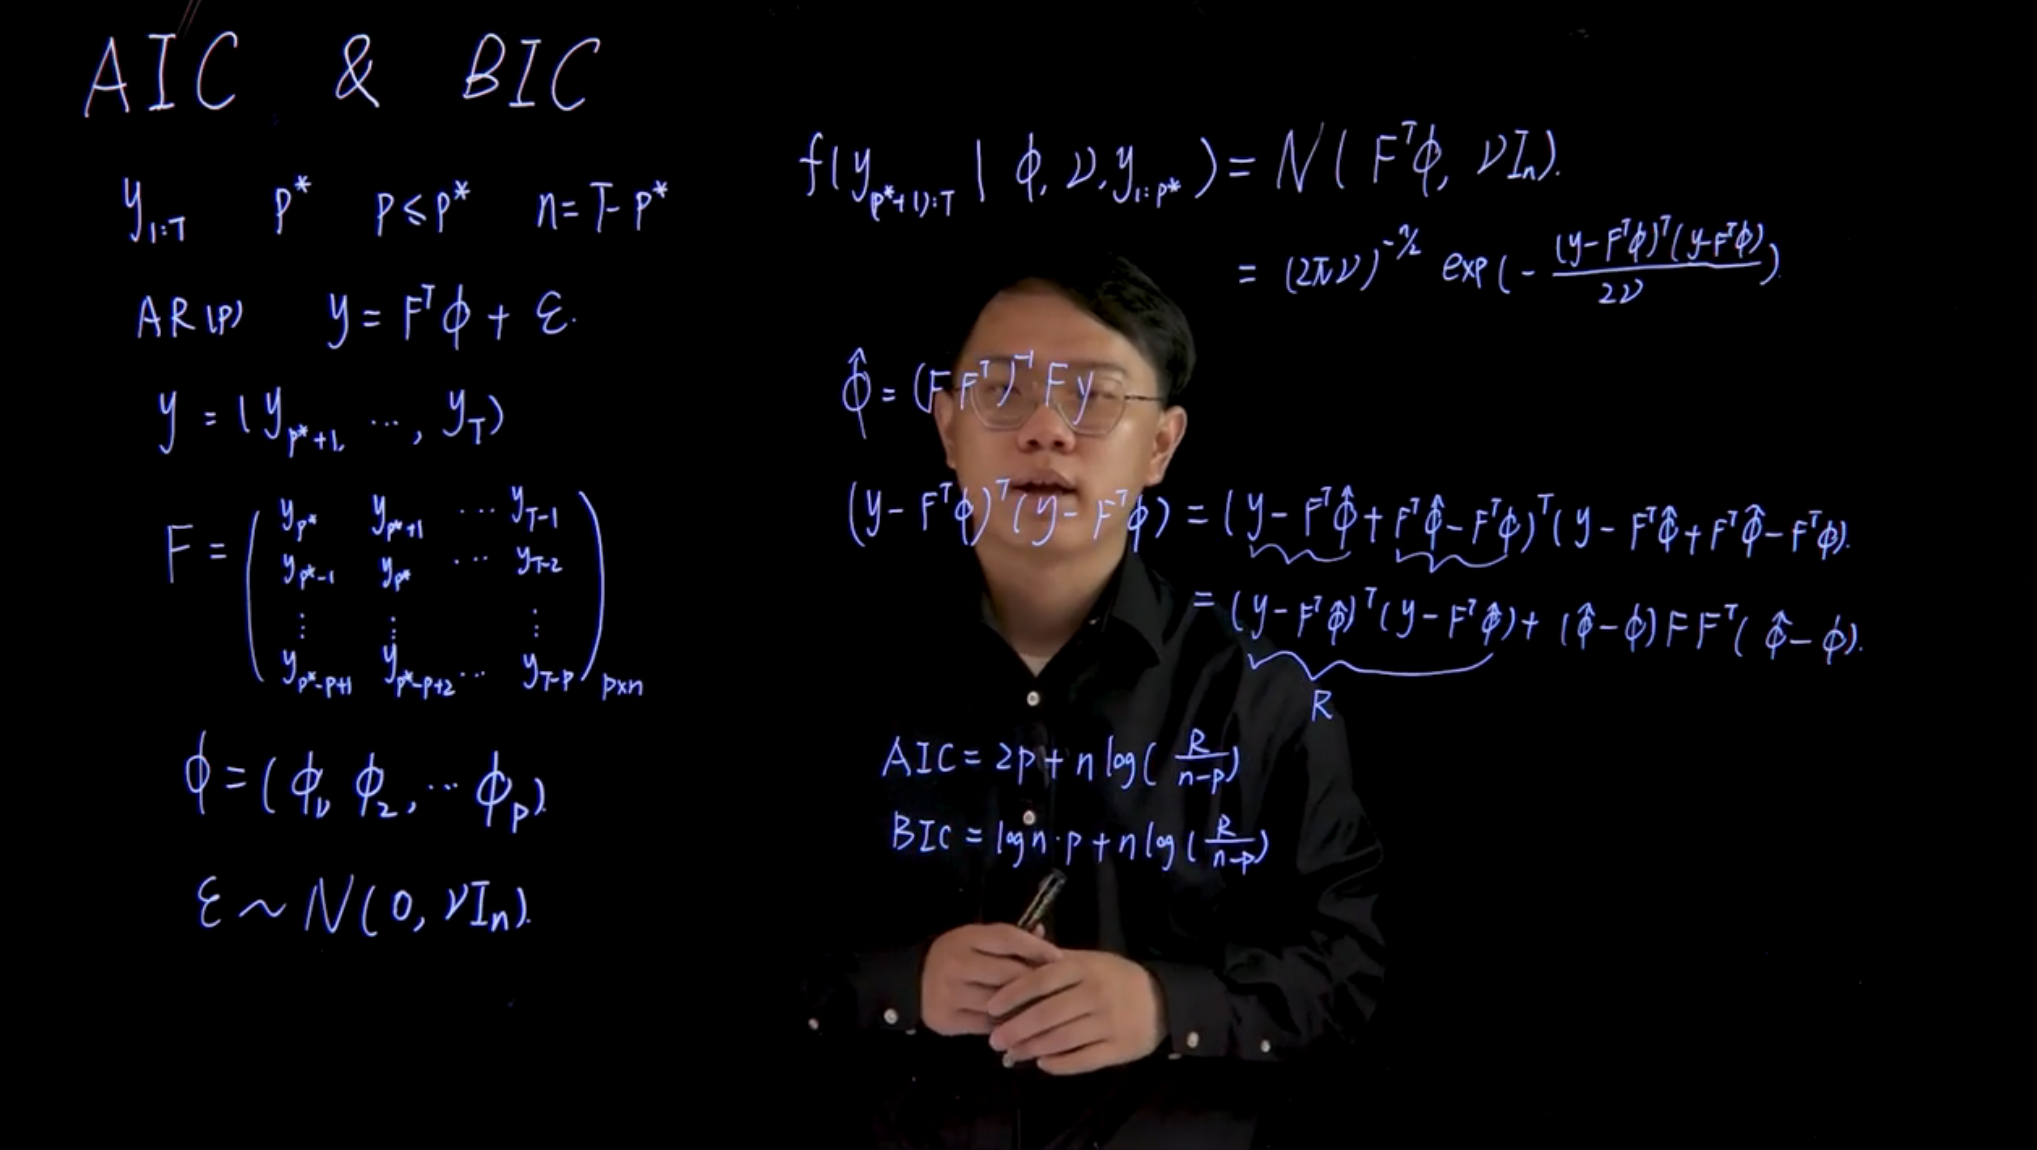 AIC & BIC
y_{1:T} p* p≤p* n=T-p*
AR(p) y=F^Tϕ+ε.
y=(y_{p*+1}, ⋯, y_T)
F = ( y_{p*} y_{p*+1} ⋯ y_{T-1}
y_{p*-1} y_{p*} ⋯ y_{T-2}
⋮ ⋮ ⋮
y_{p*-p+1} y_{p*-p+2} ⋯ y_{T-p} )_{p×n}
ϕ=(ϕ_1, ϕ_2, ⋯ ϕ_p).
ε~N(0, νI_n).
f(y_{(p*+1):T} | ϕ, ν, y_{1:p*}) = N(F^Tϕ, νI_n).
= (2πν)^{-n/2} exp(- \frac{(y-F^Tϕ)^T(y-F^Tϕ)}{2ν}).
\hat{ϕ} = (FF^T)^{-1}Fy
(y-F^Tϕ)^T(y-F^Tϕ) = (y-F^T\hat{ϕ}+F^T\hat{ϕ}-F^Tϕ)^T(y-F^T\hat{ϕ}+F^T\hat{ϕ}-F^Tϕ).
= (y-F^T\hat{ϕ})^T(y-F^T\hat{ϕ})+(\hat{ϕ}-ϕ)FF^T(\hat{ϕ}-ϕ).
R
AIC = 2p+n log(\frac{R}{n-p})
BIC = log n·p+n log(\frac{R}{n-p})